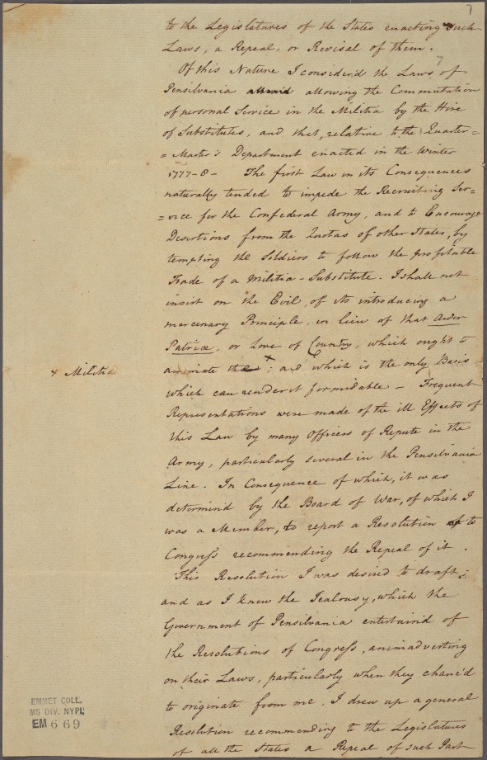 7
to the Legislatures of the States enacting such
Laws, a Repeal, or Revisal of them.
Of this Nature I consider'd the Laws of
Pensilvania allowing the Commutation
of personal Service in the Militia by the Hire
of Substitutes, and that, relative to the Quarter=
=Master's Department enacted in the Winter
1777-8 - The first Law in its Consequences
naturally tended to impede the Recruiting Ser=
=vice for the Confederal Army, and to Encourage
Desertions from the Quotas of other States, by
tempting the Soldiers to follow the profitable
Trade of a Militia-Substitute. I shall not
insist on the Evil, of its introducing a
mercenary Principle, in lieu of that Ardor
Patriæ, or Love of Country, which ought to
animate the +; and which is the only Basis
+ Militia
which can render it formidable - Frequent
Representations were made of the ill Effects of
this Law by many Officers of Repute in the
Army, particularly several in the Pensilvania
Line. In Consequence of which, it was
determin'd by the Board of War, of which I
was a Member, to report a Resolution to
Congress recommending the Repeal of it.
This Resolution I was desired to draft;
and as I knew the Jealousy, which the
Government of Pensilvania entertain'd of
the Resolutions of Congress, animadverting
on their Laws, particularly when they chanc'd
to originate from me, I drew up a general
Resolution recommending to the Legislatures
of all the States a Repeal of such Part
EMMET COLL.
MS DIV. NYPL
EM 669